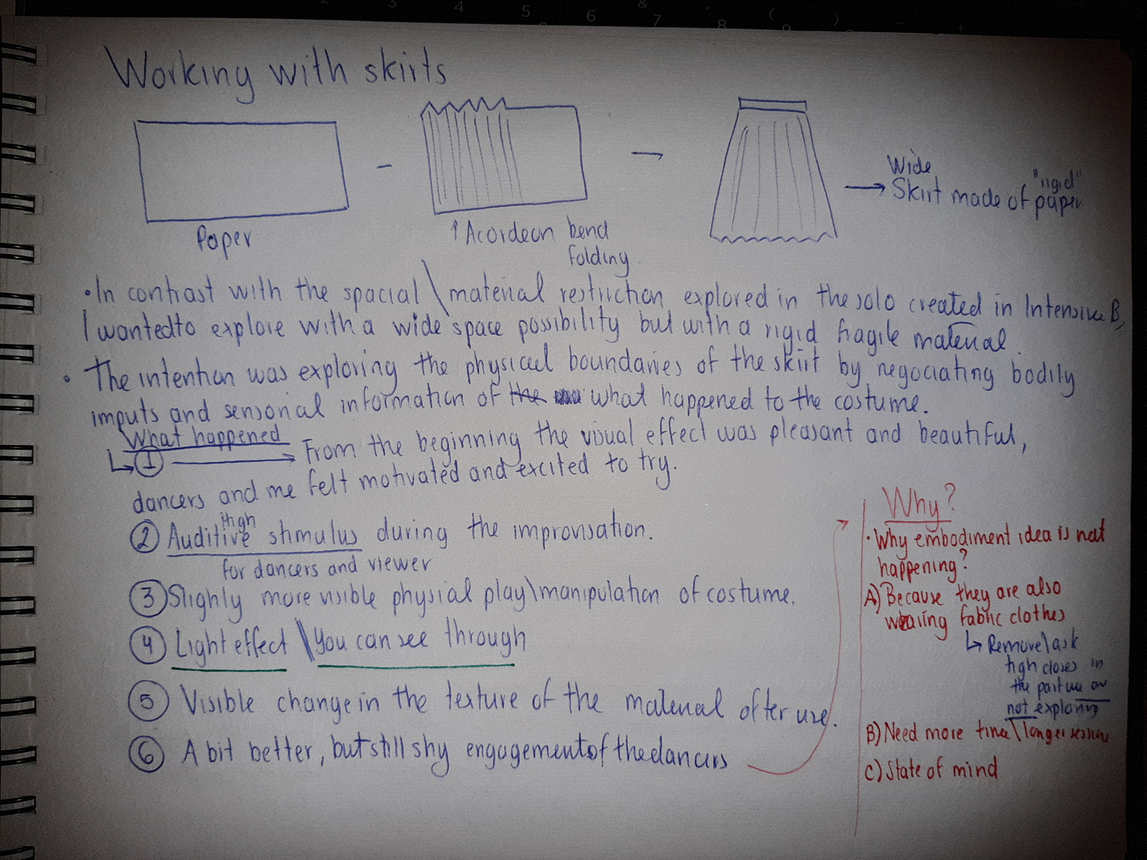 Working with skirts
Paper
Acordeon bend
folding
Wide
Skirt made of "rigid" paper
• In contrast with the spacial \ material restriction explored in the solo created in Intensive B,
I wanted to explore with a wide space possibility but with a rigid fragile material.
• The intention was exploring the physical boundaries of the skirt by negociating bodily
imputs and sensorial information of the what happened to the costume.
What happened
① From the beginning the visual effect was pleasant and beautiful,
dancers and me felt motivated and excited to try.
② Auditive high stimulus during the improvisation.
for dancers and viewer
③ Slighly more visible physical play\manipulation of costume.
④ Light effect \ You can see through
⑤ Visible change in the texture of the material after use.
⑥ A bit better, but still shy engagement of the dancers
Why?
• Why embodiment idea is not
happening?
A) Because they are also
wearing fabric clothes
Remove\ask
high closes in
the part we are
not exploring
B) Need more time\longer sessions
C) State of mind